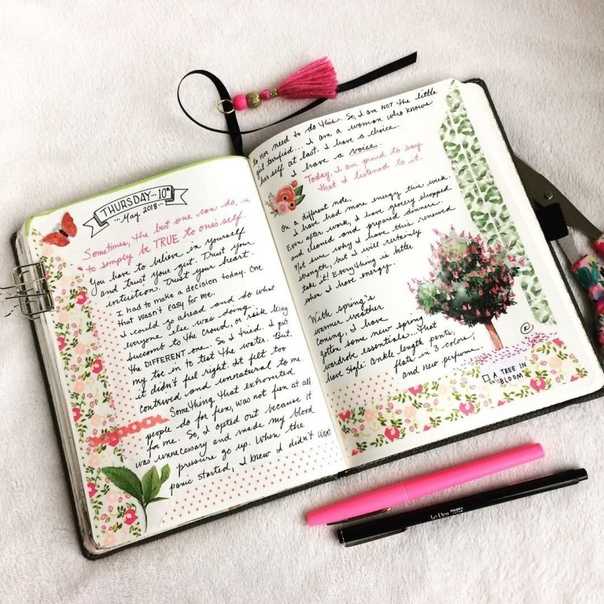 THURSDAY-10th
May, 2018
Sometimes, the best one can do, is
to simply be TRUE to one's self
You have to believe in yourself
and trust your gut. Trust your
intuition. Trust your heart.
I had to make a decision today. One
that wasn't easy for me.
I could go ahead and do what
everyone else was doing,
succumb to the crowd, or risk being
the DIFFERENT one. So I tried. I put
my toe in to test the water. But
it didn't feel right. It felt too
contrived and unnatural to me.
Something that extroverted
people do for fun, was not fun at all
for me. So, I opted out because it
was unnecessary and made my blood
pressure go up. When the
panic started, I knew I didn't
to nor need to do this. So, I am NOT the little
girl terrified... I am a woman who knows
her self at last. I have a choice.
I have a voice.
Today, I am proud to say
that I listened to it.
On a different note,
I have had more energy this week
Even after work, I have slowly shopped
and cleaned and prepared dinner.
Not sure why I have this renewed
strength, but I will certainly
take it! Everything is better
when I have energy.
With spring's
warmer weather
coming, I have
gotten some new spring
wardrobe essentials. That
have style: ankle length pants,
flats in 3 colors,
and new perfume.
A TREE IN
BLOOM
Le Pen